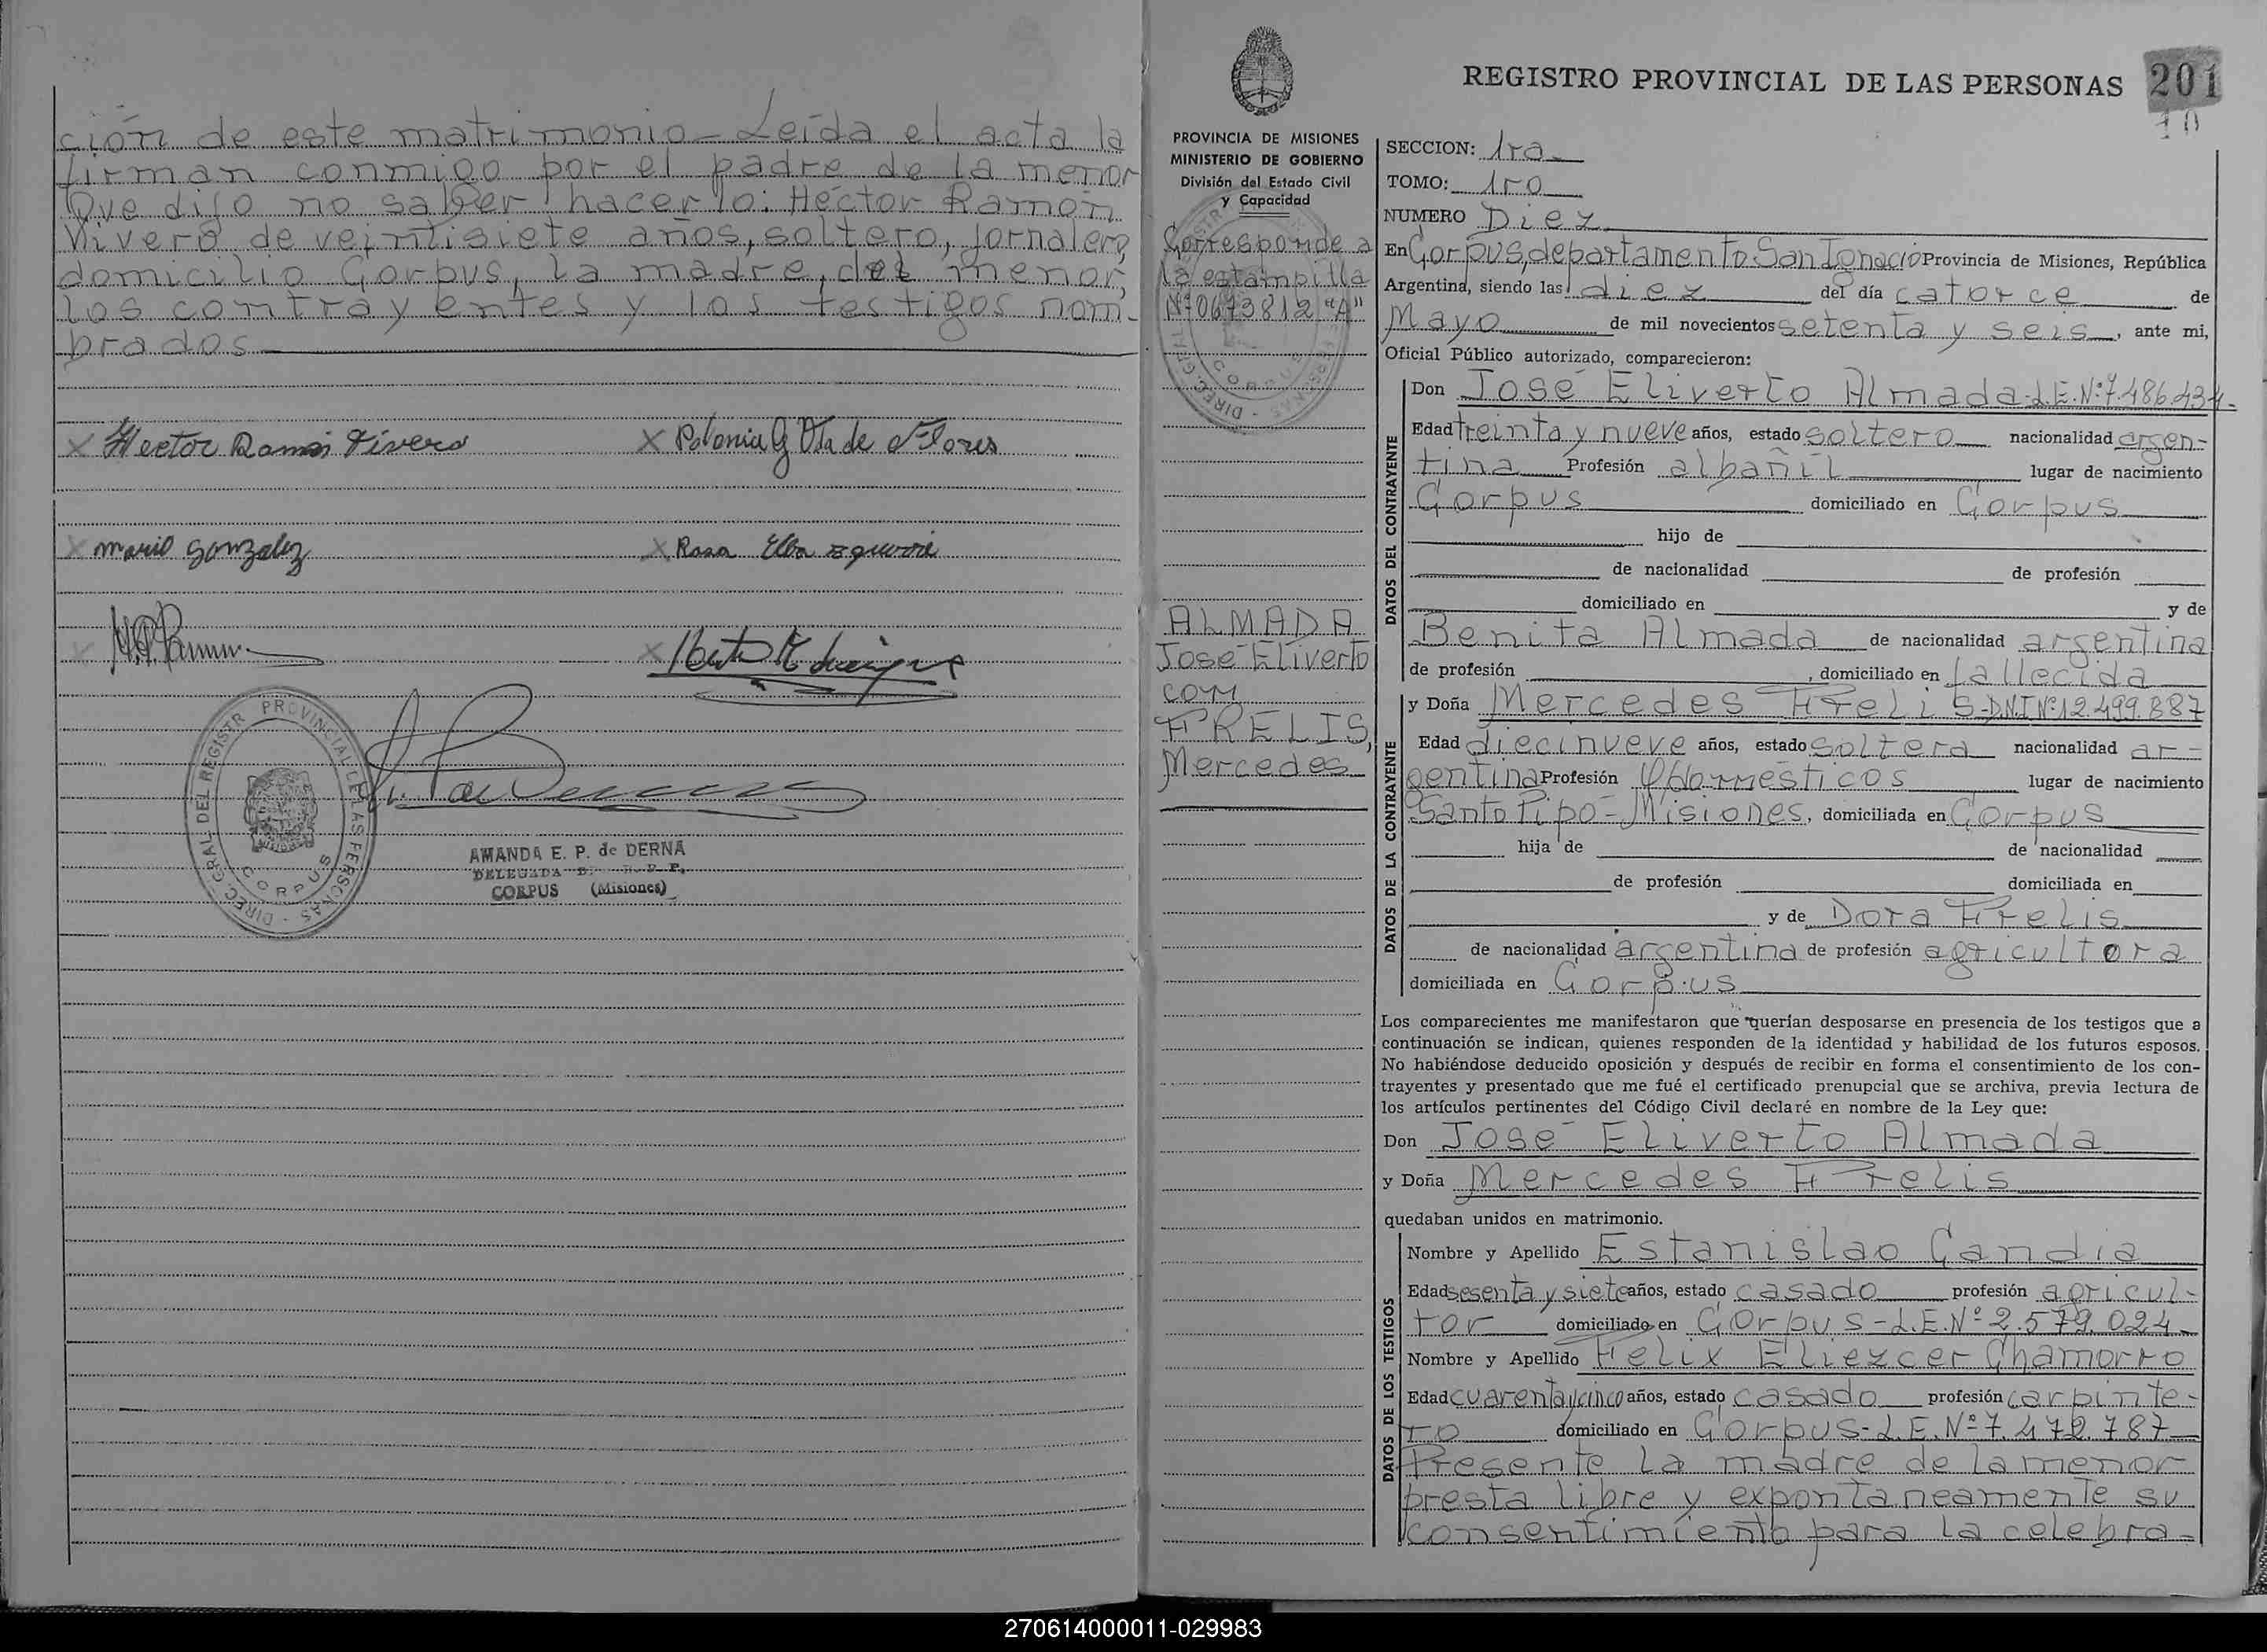 ción de este matrimonio - Leída el acta la
firman conmigo por el padre de la menor
que dijo no saber hacerlo: Héctor Ramón
Vivero de veintisiete años, soltero, jornalero,
domicilio Corpus, la madre, del menor,
los contrayentes y los testigos nom-
brados
Hector Ramon Vivero
Polonia G Vda de Flores
mario gonzalez
Rosa Elba
PROVINCIAL DE LAS PERSONAS - DIREC. GRAL. DEL REGISTR
CORPUS
AMANDA E. P. de DERNA
DELEGADA
CORPUS (Misiones)
PROVINCIA DE MISIONES
MINISTERIO DE GOBIERNO
División del Estado Civil
y Capacidad
Corresponde a
la estampilla
Nº 0673812 "A"
ALMADA
José Eliverto
con
FRELIS,
Mercedes
REGISTRO PROVINCIAL DE LAS PERSONAS 201
10
SECCION: 1ra
TOMO: 1ro
NUMERO Diez
En Corpus, departamento San Ignacio Provincia de Misiones, República
Argentina, siendo las diez del día catorce de
Mayo de mil novecientos setenta y seis, ante mi,
Oficial Público autorizado, comparecieron:
DATOS DEL CONTRAYENTE
Don José Eliverto Almada-L.E.Nº 7.486.434-
Edad treinta y nueve años, estado soltero nacionalidad argen-
tina Profesión albañil lugar de nacimiento
Corpus domiciliado en Corpus
hijo de
de nacionalidad de profesión
domiciliado en y de
Benita Almada de nacionalidad argentina
de profesión , domiciliado en fallecida
DATOS DE LA CONTRAYENTE
y Doña Mercedes Frelis-DNI Nº 12.499.887
Edad diecinueve años, estado soltera nacionalidad ar-
gentina Profesión Q/domésticos lugar de nacimiento
Santo Pipó-Misiones, domiciliada en Corpus
hija de de nacionalidad
de profesión domiciliada en
y de Dora Frelis
de nacionalidad argentina de profesión agricultora
domiciliada en Corpus
Los comparecientes me manifestaron que querían desposarse en presencia de los testigos que a
continuación se indican, quienes responden de la identidad y habilidad de los futuros esposos.
No habiéndose deducido oposición y después de recibir en forma el consentimiento de los con-
trayentes y presentado que me fué el certificado prenupcial que se archiva, previa lectura de
los artículos pertinentes del Código Civil declaré en nombre de la Ley que:
Don José Eliverto Almada
y Doña Mercedes Frelis
quedaban unidos en matrimonio.
DATOS DE LOS TESTIGOS
Nombre y Apellido Estanislao Candia
Edad sesenta y siete años, estado casado profesión agricul-
tor domiciliado en Corpus-L.E.Nº 2.579.024-
Nombre y Apellido Felix Eliezcer Chamorro
Edad cuarenta y cinco años, estado casado profesión carpinte-
ro domiciliado en Corpus-L.E.Nº 7.472.787
Presente la madre de la menor
presta libre y expontaneamente su
consentimiento para la celebra-
270614000011-029983